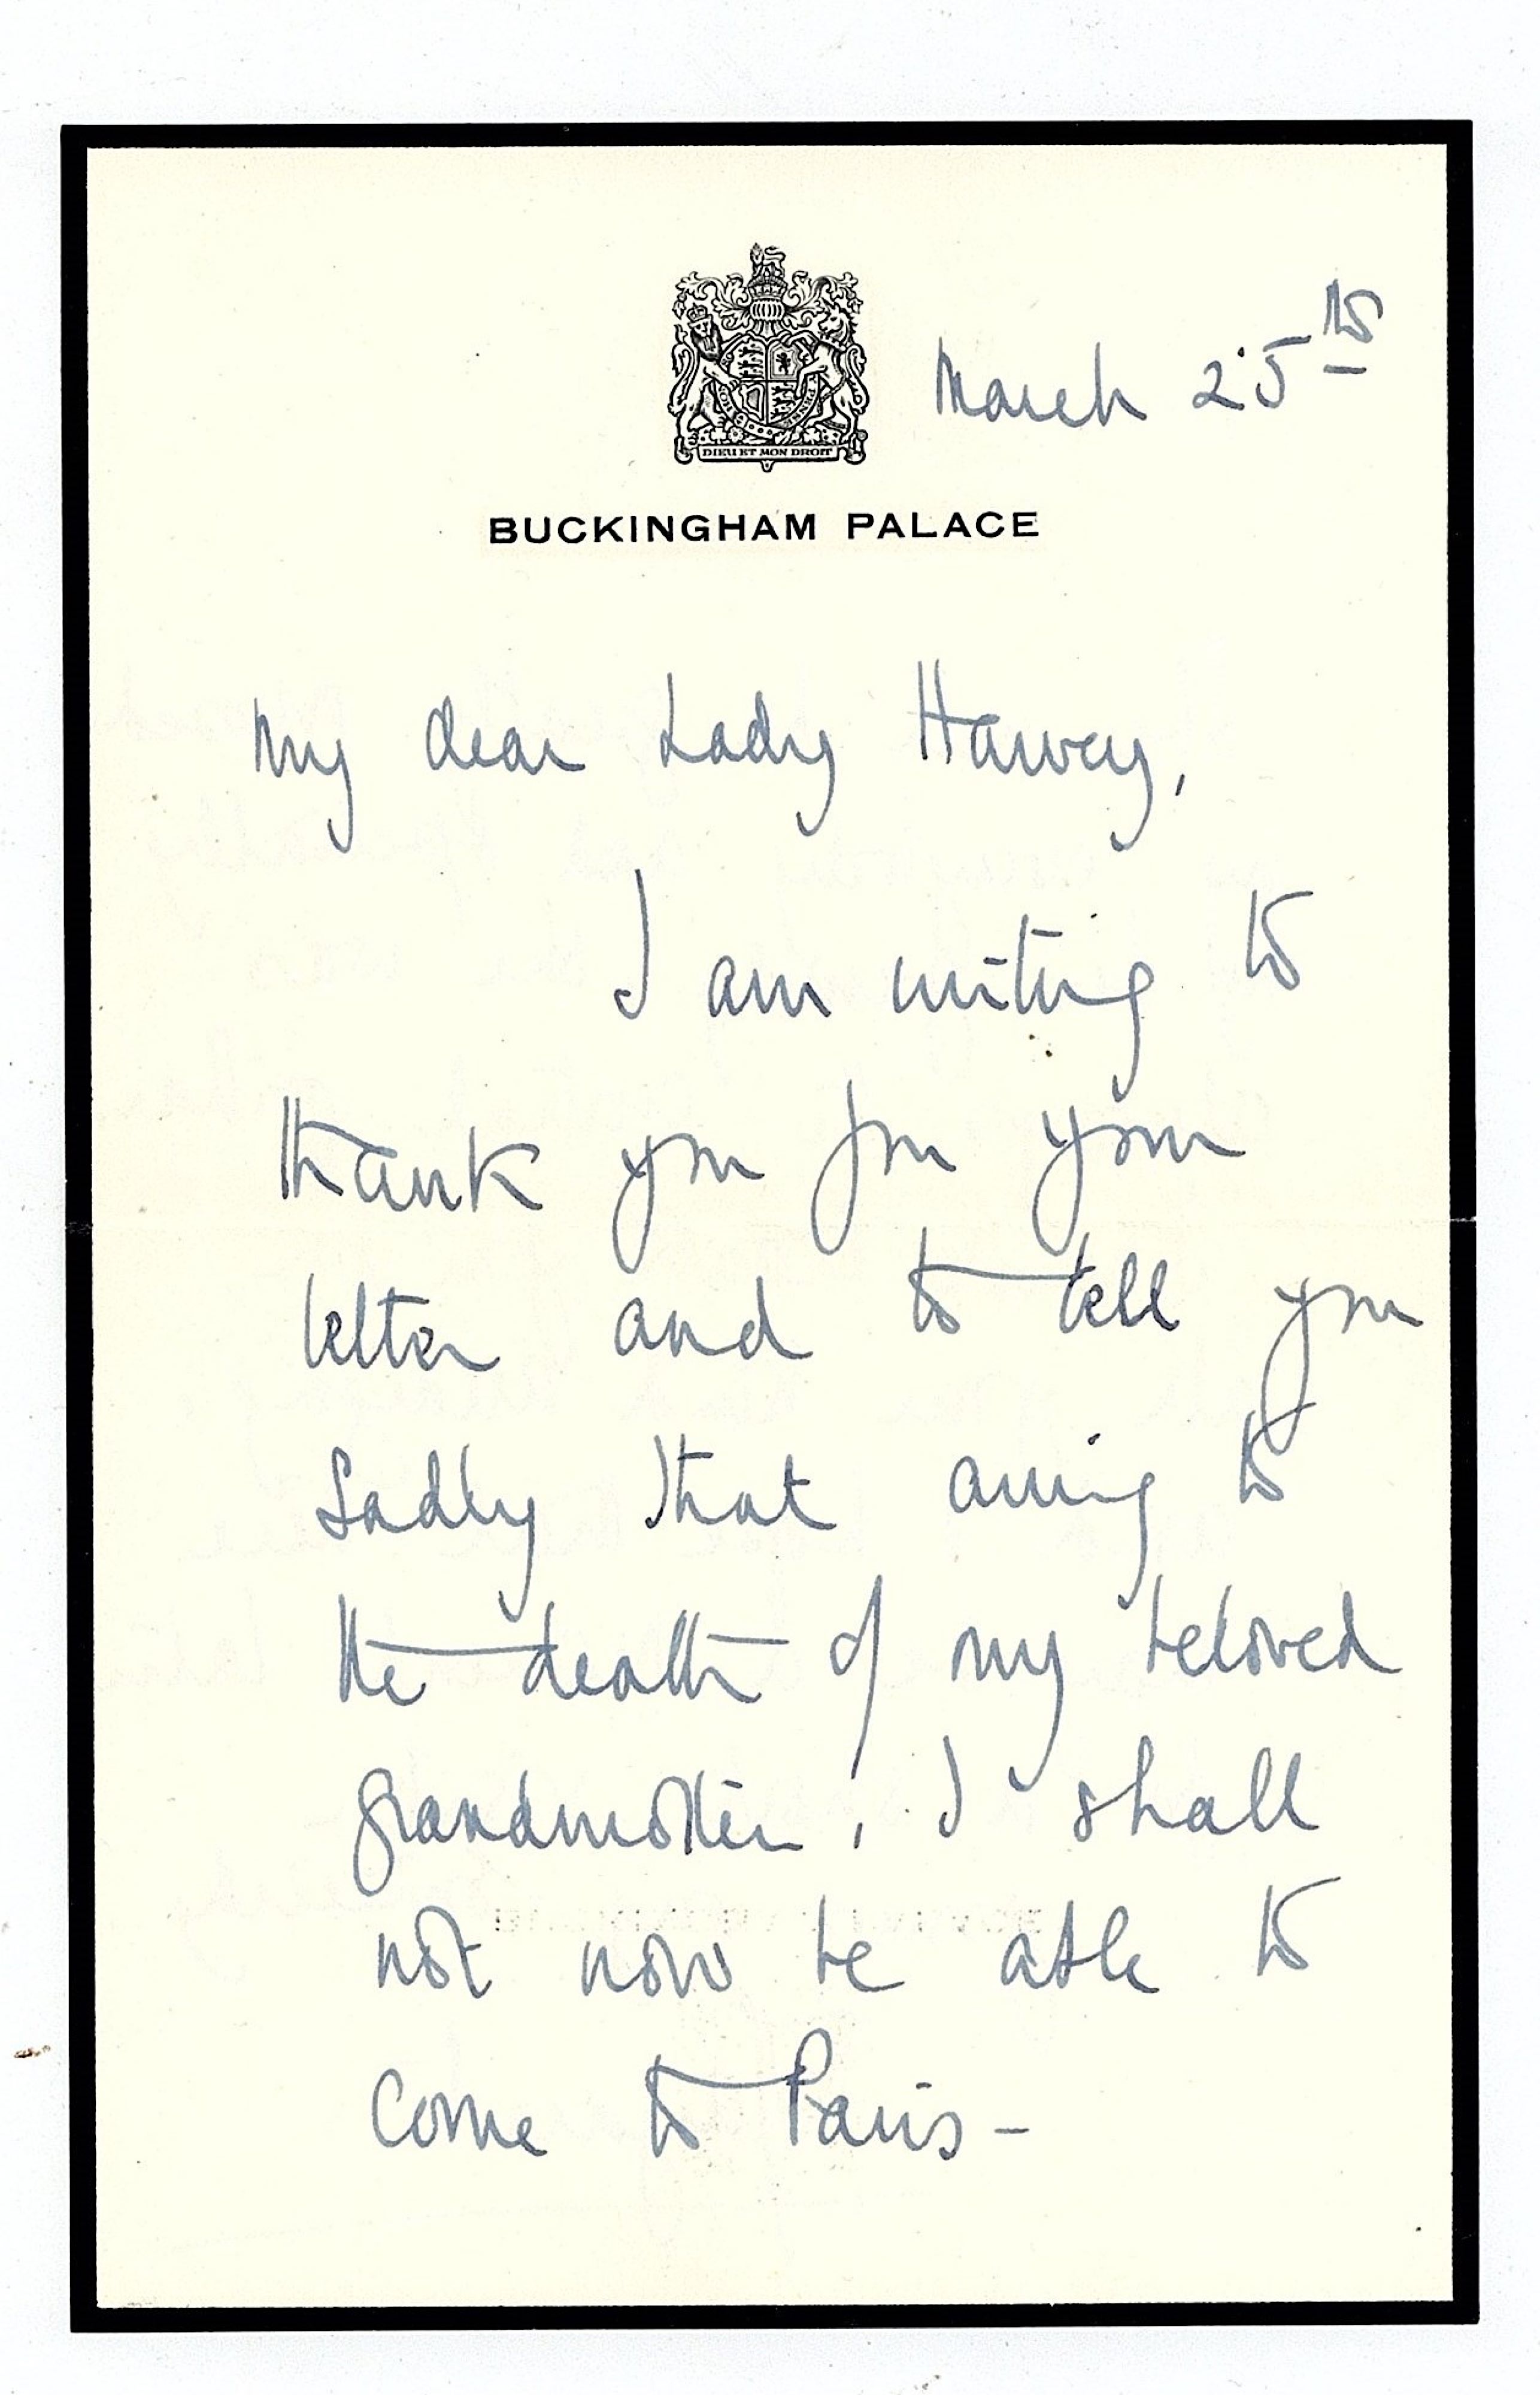 March 25th
DIEU ET MON DROIT
BUCKINGHAM PALACE
My dear Lady Harvey,
I am writing to
thank you for your
letter and to tell you
sadly that owing to
the death of my beloved
grandmother, I shall
not now be able to
come to Paris -